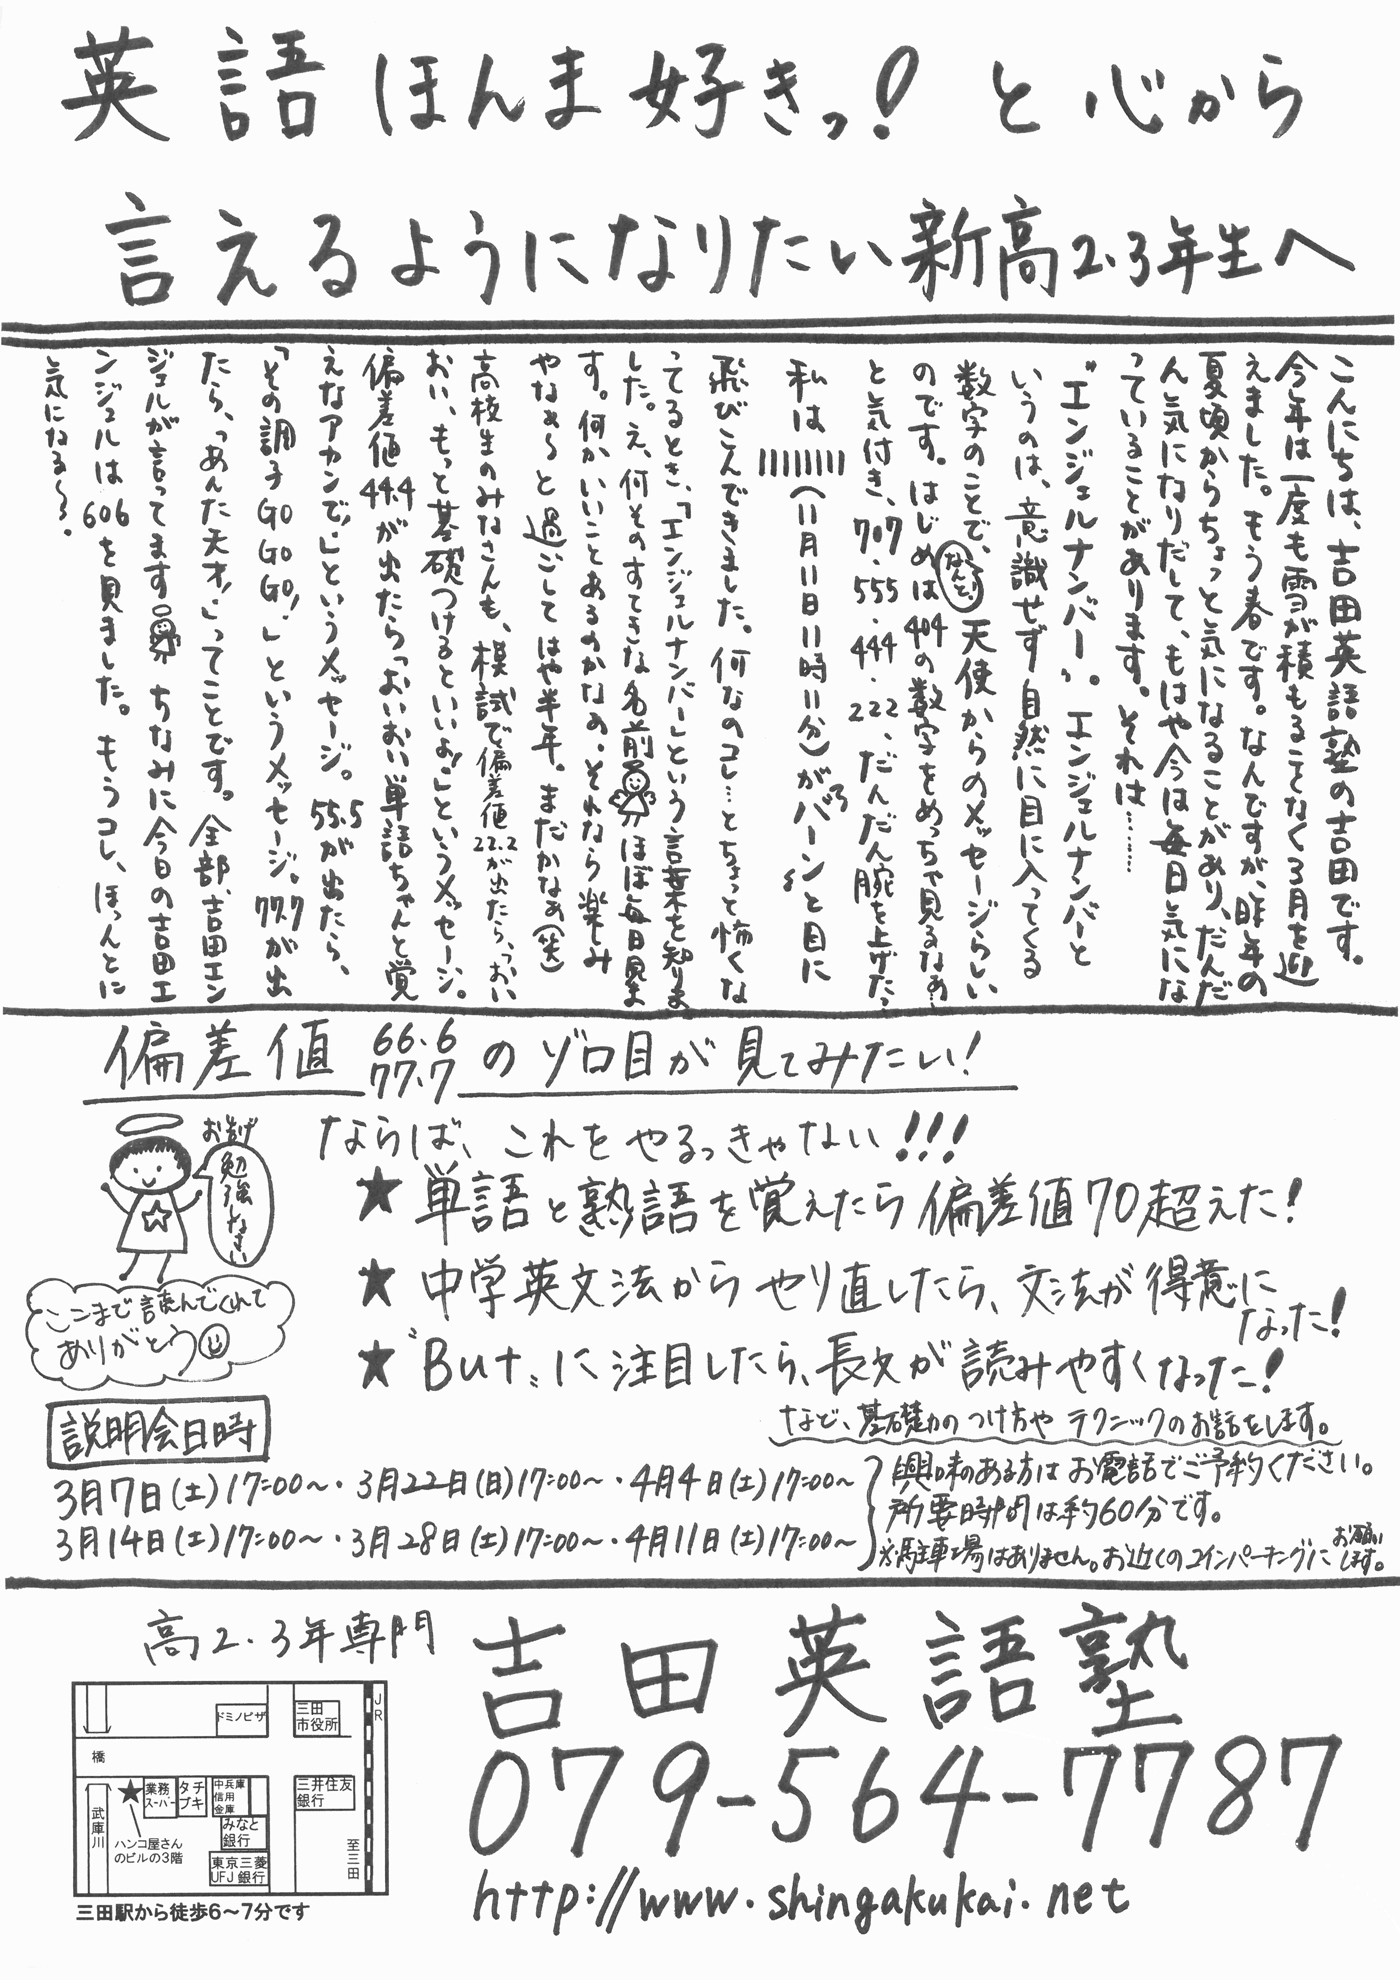 英語ほんま好きっ！と心から
言えるようになりたい新高2・3年生へ
こんにちは、吉田英語塾の吉田です。
今年は一度も雪が積もることなく3月を迎
えました。もう春です。なんですが、昨年の
夏頃からちょっと気になることがあり、だんだ
ん気になりだして、もはや今は毎日気にな
っていることがあります。それは………
〝エンジェルナンバー〟。エンジェルナンバーと
いうのは、意識せず自然に目に入ってくる
数字のことで、なんと、天使からのメッセージらしい
のです。はじめは404の数字をめっちゃ見るなぁ…
と気付き、707・555・444・222、だんだん腕を上げたっ
私は11111111（11月11日11時11分）がバーンと目に
飛びこんできました。何なのコレ…とちょっと怖くな
ってるとき、「エンジェルナンバー」という言葉を知りま
した。え、何そのすてきな名前 ほぼ毎日見ま
す。何かいいことあるのかなぁ。それなら楽しみ
やなぁ〜と過ごしてはや半年。まだかなぁ（笑）
高校生のみなさんも、模試で偏差値22.2が出たら、「おい
おい、もっと基礎つけるといいよ！」というメッセージ。
偏差値44.4が出たら「おいおい単語ちゃんと覚
えなアカンで！」というメッセージ。55.5が出たら、
「その調子GO GO GO！」というメッセージ。77.7が出
たら、「あんた天才！」ってことです。全部、吉田エン
ジェルが言ってます ちなみに今日の吉田エ
ンジェルは606を見ました。もうコレ、ほっんとに
気になる〜。
偏差値 66.6 77.7 のゾロ目が見てみたい！
お告げ
勉強しなさい
ここまで読んでくれて
ありがとう
ならば、これをやるっきゃない!!!
★ 単語と熟語を覚えたら偏差値70超えた！
★ 中学英文法からやり直したら、文法が得意に
なった！
★〝But〟に注目したら、長文が読みやすくなった！
など、基礎力のつけ方やテクニックのお話をします。
説明会日時
3月7日（土）17:00〜・3月22日（日）17:00〜・4月4日（土）17:00〜
3月14日（土）17:00〜・3月28日（土）17:00〜・4月11日（土）17:00〜
興味のある方はお電話でご予約ください。
所要時間は約60分です。
※駐車場はありません。お近くのコインパーキングにお願いします。
高2・3年専門
吉田英語塾
079-564-7787
http://www.shingakukai.net
JR
ドミノピザ
三田
市役所
橋
業務
スーパー
タチ
ブキ
中兵庫
信用
金庫
三井住友
銀行
武庫川
ハンコ屋さん
のビルの3階
みなと
銀行
東京三菱
UFJ銀行
至三田
三田駅から徒歩6〜7分です